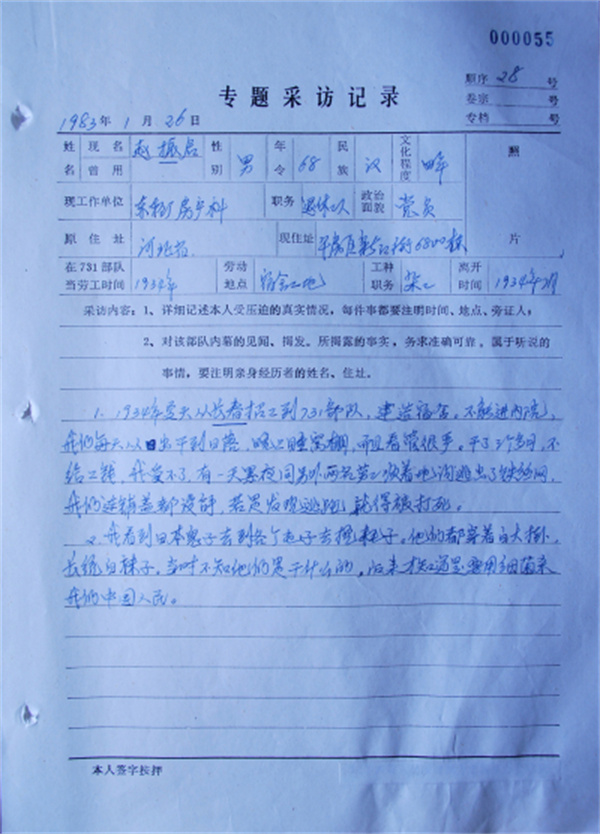 000055
顺序 28 号
卷宗 号
专档 号
专题采访记录
1983年 1月 26日
姓名 现名 赵振启 曾用 性别 男 年令 68 民族 汉 文化程度 四年 照片
现工作单位 房产科 职务 退休工人 政治面貌 党员
原住址 河北省 现住址 平房区 栋
在731部队当劳工时间 1934年 劳动地点 宿舍工地 工种职务 离开时间 1934年 月
采访内容:1、详细记述本人受压迫的真实情况,每件事都要注明时间、地点、旁证人;
2、对该部队内幕的见闻、揭发。所揭露的事实,务求准确可靠。属于听说的
事情,要注明亲身经历者的姓名、住址。
1. 1934年夏天从长春招工到731部队,建造宿舍,不能进内院,
我们每天从日出干到日落,晚上睡窝棚,而且看管很严。干了3个多月,不
给工钱,我受不了,有一天黑夜同另外两名劳工 着地沟逃出了铁丝网,
我们连铺盖都没拿,若是发现逃跑就得被打死。
2. 我看到日本鬼子去到各个屯子去挖耗子。他们都穿着白大褂、
长统白袜子,当时不知他们是干什么的,后来才知道是要用细菌来
我们中国人民。
本人签字按押